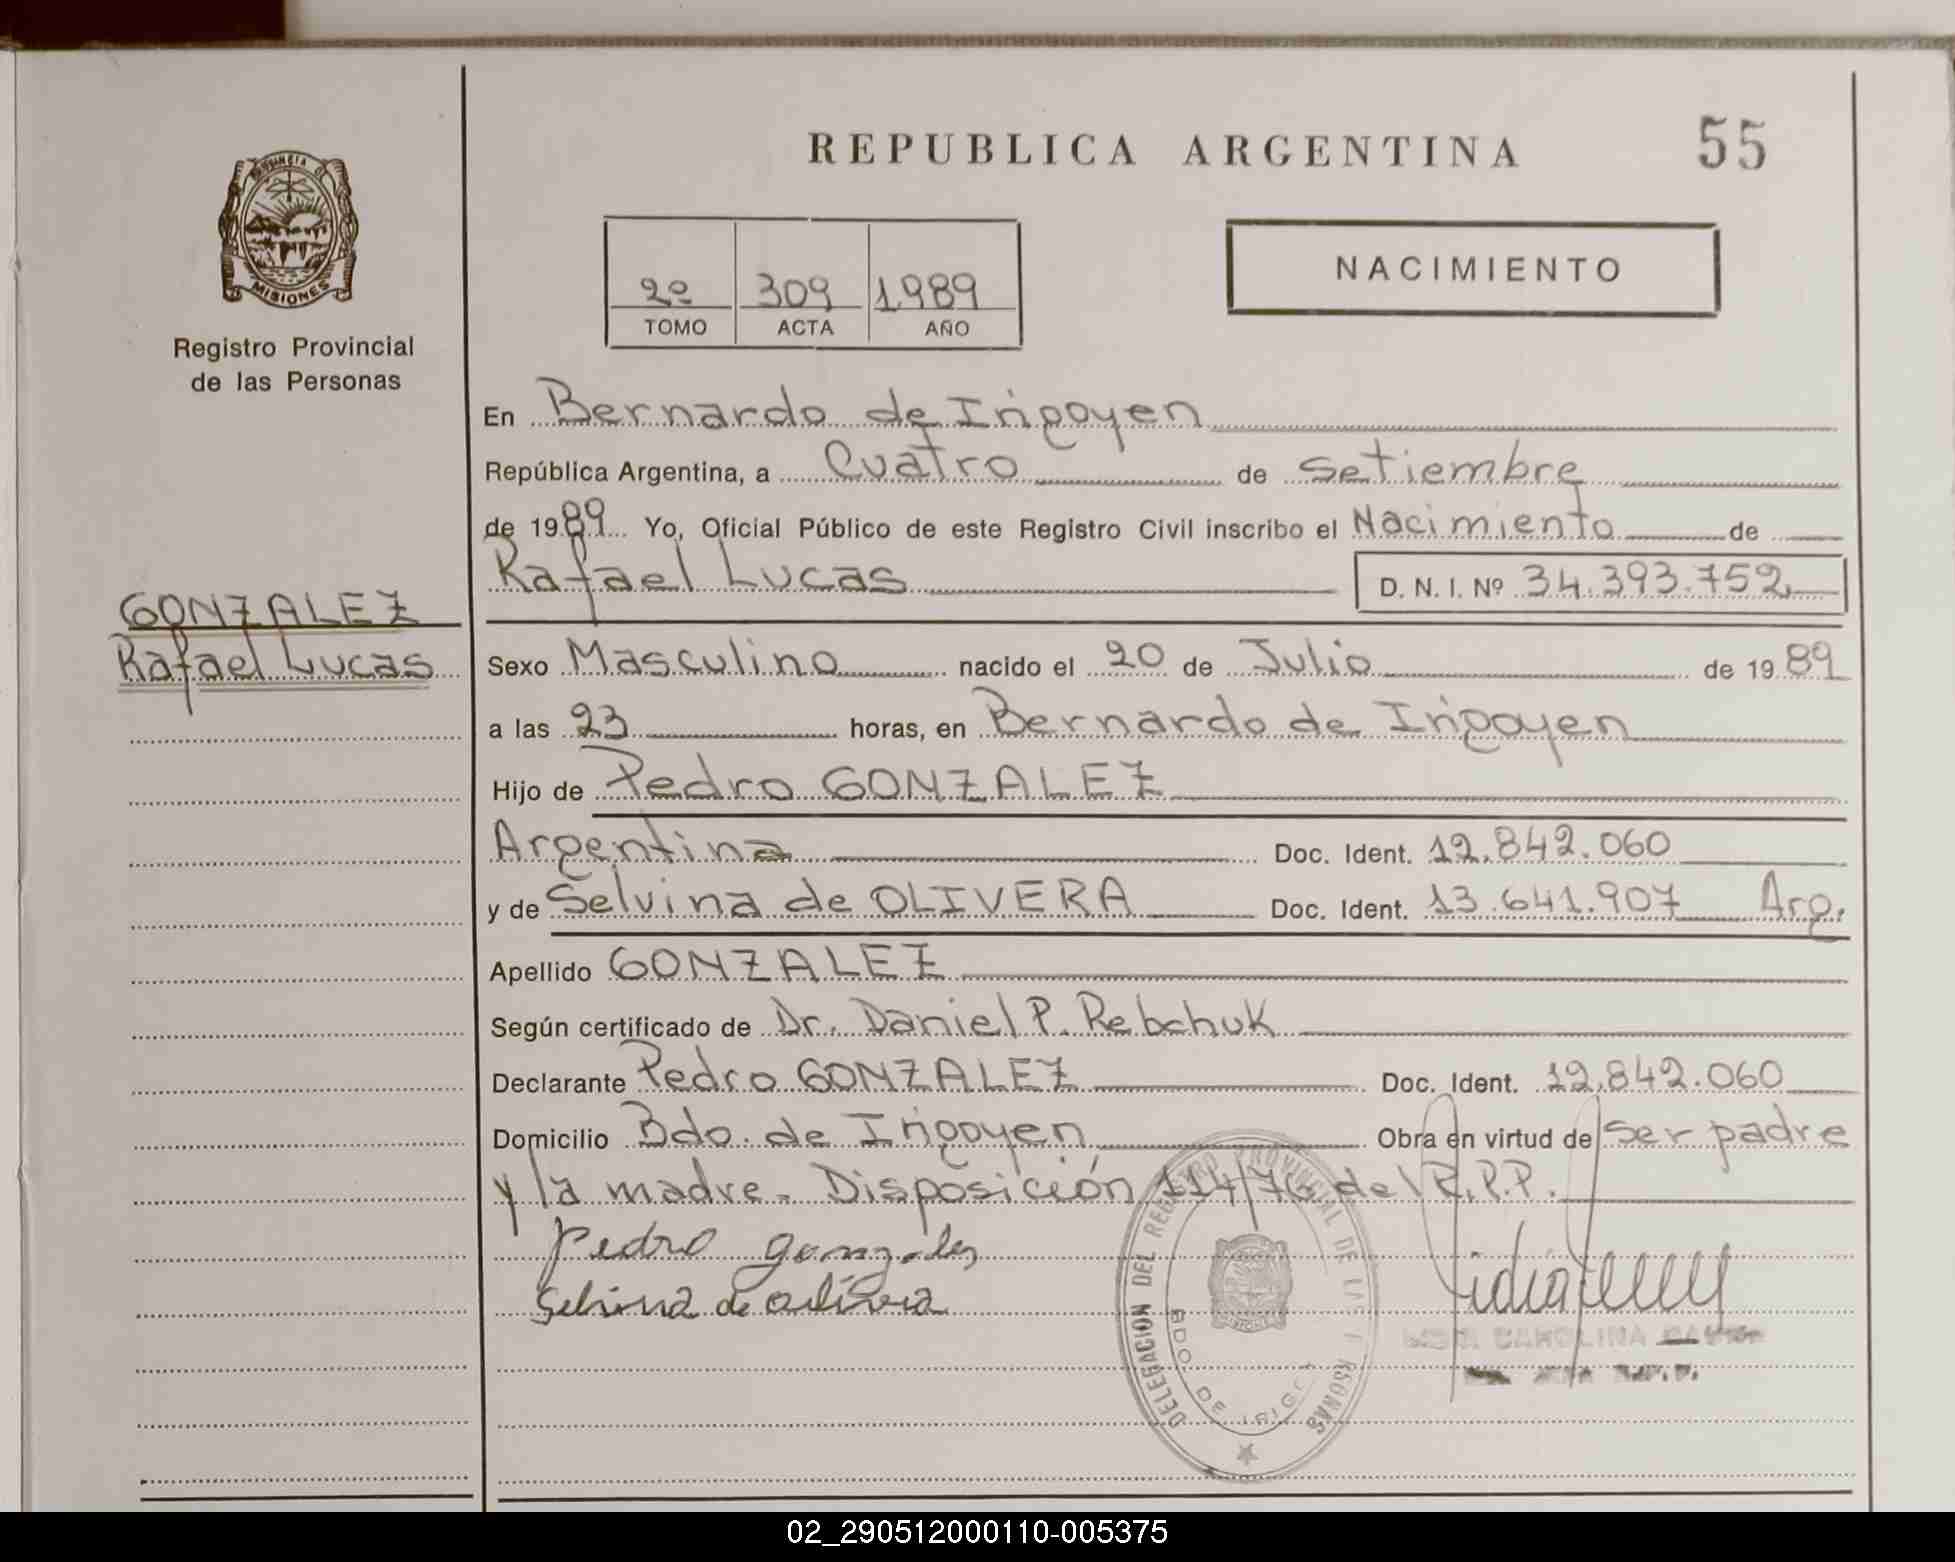 REPUBLICA ARGENTINA
55
PROVINCIA
MISIONES
Registro Provincial
de las Personas
2º 309 1989
TOMO ACTA AÑO
NACIMIENTO
En Bernardo de Irigoyen
República Argentina, a Cuatro de Setiembre
de 1989 Yo, Oficial Público de este Registro Civil inscribo el Nacimiento de
Rafael Lucas D. N. I. Nº 34.393.752
GONZALEZ
Rafael Lucas
Sexo Masculino nacido el 20 de Julio de 1989
a las 23 horas, en Bernardo de Irigoyen
Hijo de Pedro GONZALEZ
Argentina Doc. Ident. 12.842.060
y de Selvina de OLIVERA Doc. Ident. 13.641.907 Arg.
Apellido GONZALEZ
Según certificado de Dr. Daniel P. Rebchuk
Declarante Pedro GONZALEZ Doc. Ident. 12.842.060
Domicilio Bdo. de Irigoyen Obra en virtud de ser padre
y la madre. Disposición 114/76 del R.P.P.
Pedro gonzales
Selvina de olivera
DELEGACION DEL REGISTRO PROVINCIAL DE LAS PERSONAS
BDO DE IRIG
CAROLINA
02_290512000110-005375